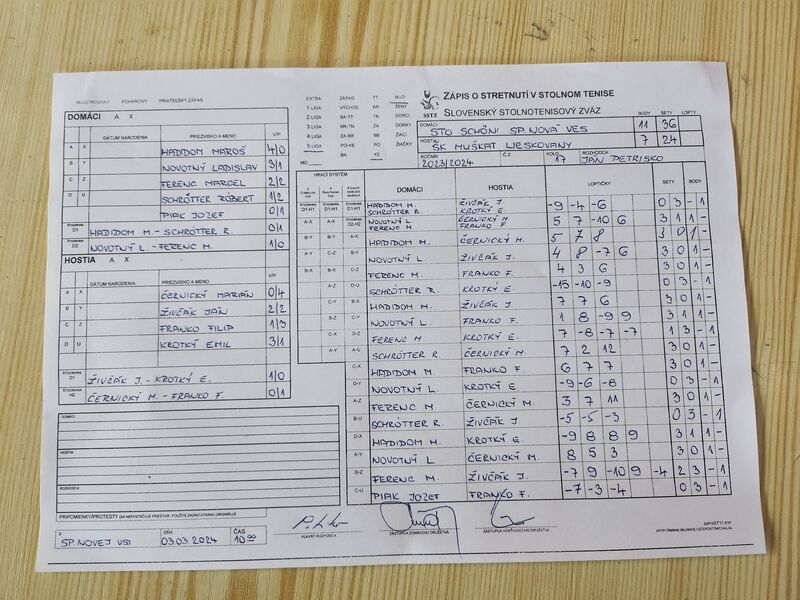 MAJSTROVSKÝ POHÁROVÝ PRIATEĽSKÝ ZÁPAS
EXTRA ZÁPAD TT MUŽI
1.LIGA VÝCHOD NR ŽENY
2.LIGA BA-TT TN DORCI
3.LIGA NR-TN ZA DORKY
4.LIGA ZA-BB BB ŽIACI
5.LIGA PO-KE PO ŽIAČKY
BA KE
MO
SSTZ
ZÁPIS O STRETNUTÍ V STOLNOM TENISE
SLOVENSKÝ STOLNOTENISOVÝ ZVÄZ
BODY SETY LOPTY
DOMÁCI STO SCHÖNI SP.NOVÁ VES 11 36
HOSTIA ŠK MUŠKÁT LIESKOVANY 7 24
ROČNÍK 2023/2024 Č.Z. KOLO 17 ROZHODCA JÁN PETRISKO
DOMÁCI A X
DÁTUM NARODENIA PRIEZVISKO A MENO V/P
A X HADIDOM MAROŠ 4/0
B Y NOVOTNÝ LADISLAV 3/1
C Z FERENC MARCEL 2/2
D U SCHRÖTTER RÓBERT 1/2
PIAK JOZEF 0/1
ŠTVORHRA D1 HADIDOM M - SCHRÖTTER R. 0/1
ŠTVORHRA D2 NOVOTNÝ L. - FERENC M. 1/0
HOSTIA A X
DÁTUM NARODENIA PRIEZVISKO A MENO V/P
A X ČERNICKÝ MARIÁN 0/4
B Y ŽIVČÁK JÁN 2/2
C Z FRANKO FILIP 1/3
D U KROTKÝ EMIL 3/1
ŠTVORHRA D1 ŽIVČÁK J. - KROTKÝ E. 1/0
ŠTVORHRA H2 ČERNICKÝ M. - FRANKO F. 0/1
DOMÁCI
HOSTIA
ROZHODCA
PRIPOMIENKY/PROTESTY (AK NEPOSTAČUJE PRIESTOR, POUŽITE ZADNÚ STRANU ORIGINÁLU)
V SP.NOVEJ VSI DŇA 03.03.2024 ČAS 10.00
HRACÍ SYSTÉM DOMÁCI HOSTIA LOPTIČKY SETY BODY
D1-H1 D1-H1 D1-H1 HADIDOM M. SCHRÖTTER R. ŽIVČÁK J. KROTKÝ E. -9 -4 -6 0 3 - 1
A-X A-X D2-H2 NOVOTNÝ L FERENC M ČERNICKÝ M. FRANKO F. 5 7 -10 6 3 1 1 -
B-Y B-Y A-Y HADIDOM M. ČERNICKÝ M. 5 7 8 3 0 1 -
A-Y C-Z B-X NOVOTNÝ L. ŽIVČÁK J. 4 8 -7 6 3 0 1 -
B-X B-X C-Z FERENC M. FRANKO F. 4 3 6 3 0 1 -
A-Z D-U SCHRÖTTER R. KROTKÝ E. -15 -10 -9 0 3 - 1
C-Y B-X HADIDOM M. ŽIVČÁK J. 7 7 6 3 0 1 -
B-Z C-Y NOVOTNÝ L. FRANKO F. 1 8 -9 9 3 1 1 -
C-X D-Z FERENC M KROTKÝ E. 7 -8 -7 -7 1 3 - 1
A-Y A-U SCHRÖTTER R. ČERNICKÝ M 7 2 12 3 0 1 -
C-X HADIDOM M. FRANKO F. 6 7 7 3 0 1 -
D-Y NOVOTNÝ L. KROTKÝ E. -9 -6 -8 0 3 - 1
A-Z FERENC M. ČERNICKÝ M. 3 7 11 3 0 1 -
B-U SCHRÖTTER R. ŽIVČÁK J. -5 -5 -3 0 3 - 1
D-X HADIDOM M. KROTKÝ E. -9 8 8 9 3 1 1 -
A-Y NOVOTNÝ L. ČERNICKÝ M. 8 5 3 3 0 1 -
B-Z FERENC M. ŽIVČÁK J. -7 9 -10 9 -4 2 3 - 1
C-U PIAK JOZEF FRANKO F. -7 -3 -4 0 3 - 1
HLAVNÝ ROZHODCA
ZÁSTUPCA DOMÁCEHO DRUŽSTVA
ZÁSTUPCA HOSŤUJÚCEHO DRUŽSTVA